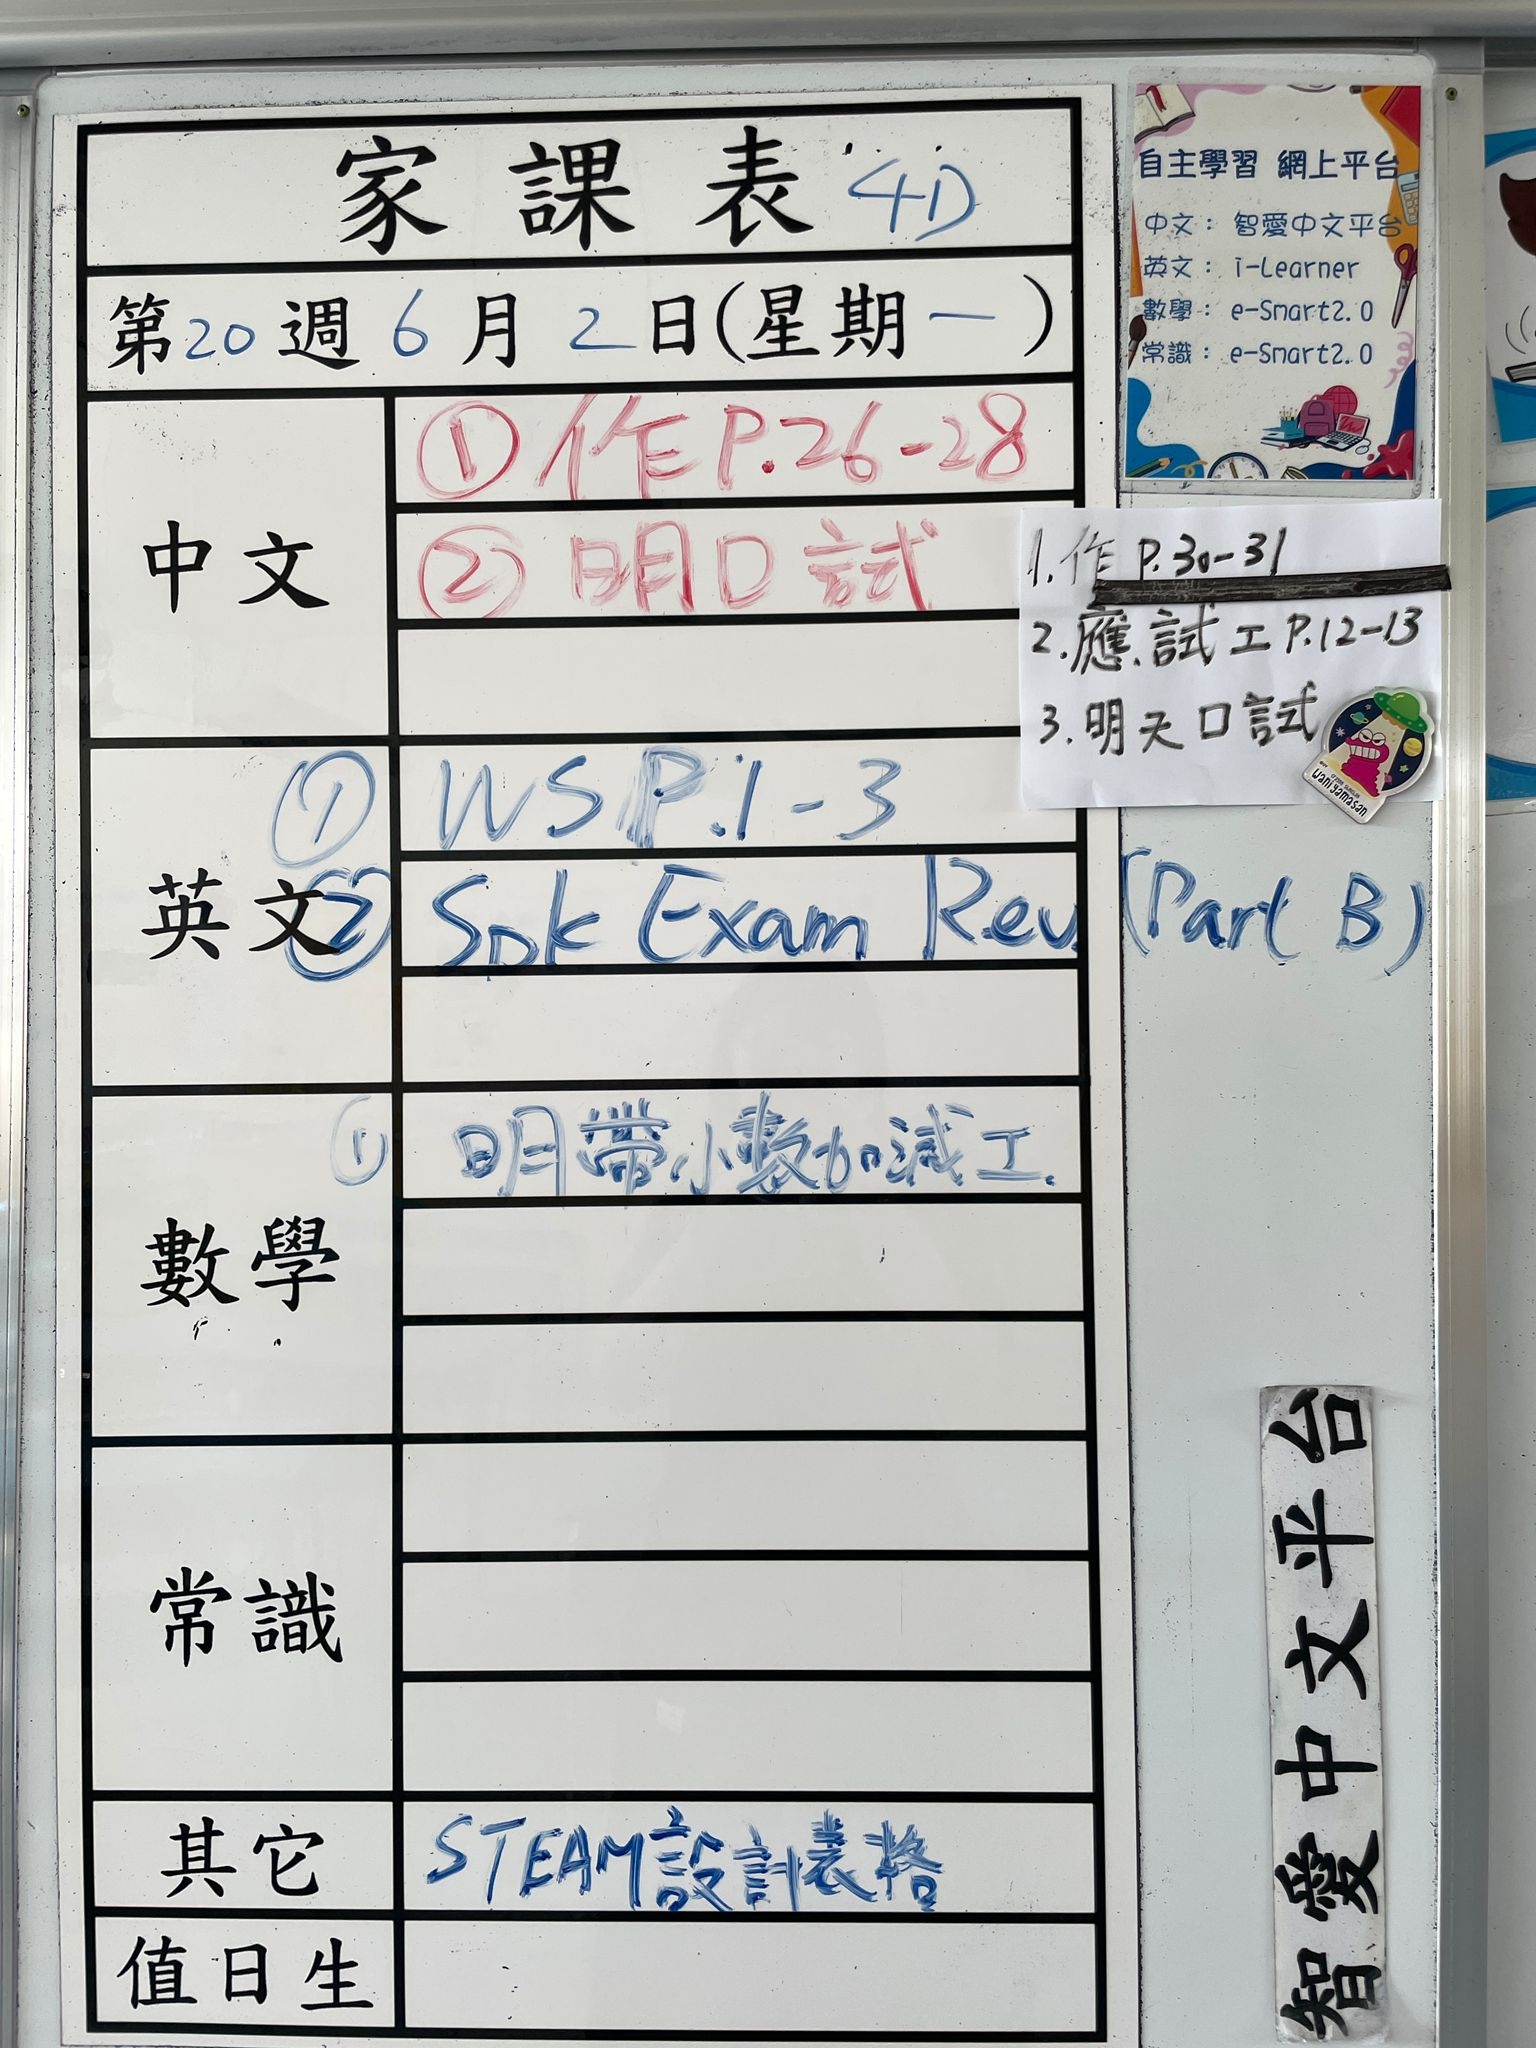 家課表 4D
第20週6月2日(星期一)
中文
① 作 P.26-28
② 明口試
英文
① WS P.1-3
② Spk Exam Rev. (Part B)
數學
① 明帶小數加減工.
常識
其它
STEAM設計表格
值日生
自主學習 網上平台
中文： 智愛中文平台
英文： i-Learner
數學： e-Smart2.0
常識： e-Smart2.0
1. 作 P.30-31
2. 應.試工 P.12-13
3. 明天口試
wani yamasan
智愛中文平台